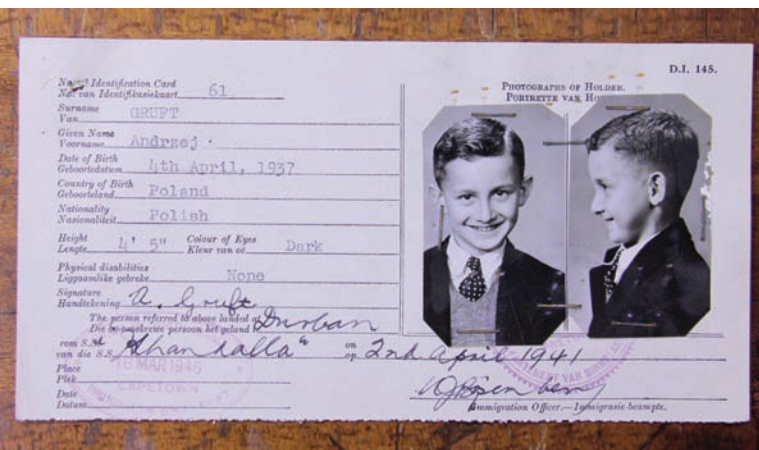 D.I. 145.
No. of Identification Card
No. van Identifikasiekaart 61
Surname
Van GRUFT
Given Name
Voorname Andrzej
Date of Birth
Geboortedatum 4th April, 1937
Country of Birth
Geboorteland Poland
Nationality
Nasionaliteit Polish
Height
Lengte 4' 5" Colour of Eyes
Kleur van oë Dark
Physical disabilities
Liggaamlike gebreke None
Signature
Handtekening A. Gruft
The person referred to above landed at
Die bo-gemelde persoon het geland Durban
from S.S.
van die S.S. on
op 2nd April 1941
Place
Plek
Date
Datum
16 MAR 1946
CAPETOWN
PHOTOGRAPHS OF HOLDER.
PORTRETTE VAN
Immigration Officer.—Immigrasie-beampte.